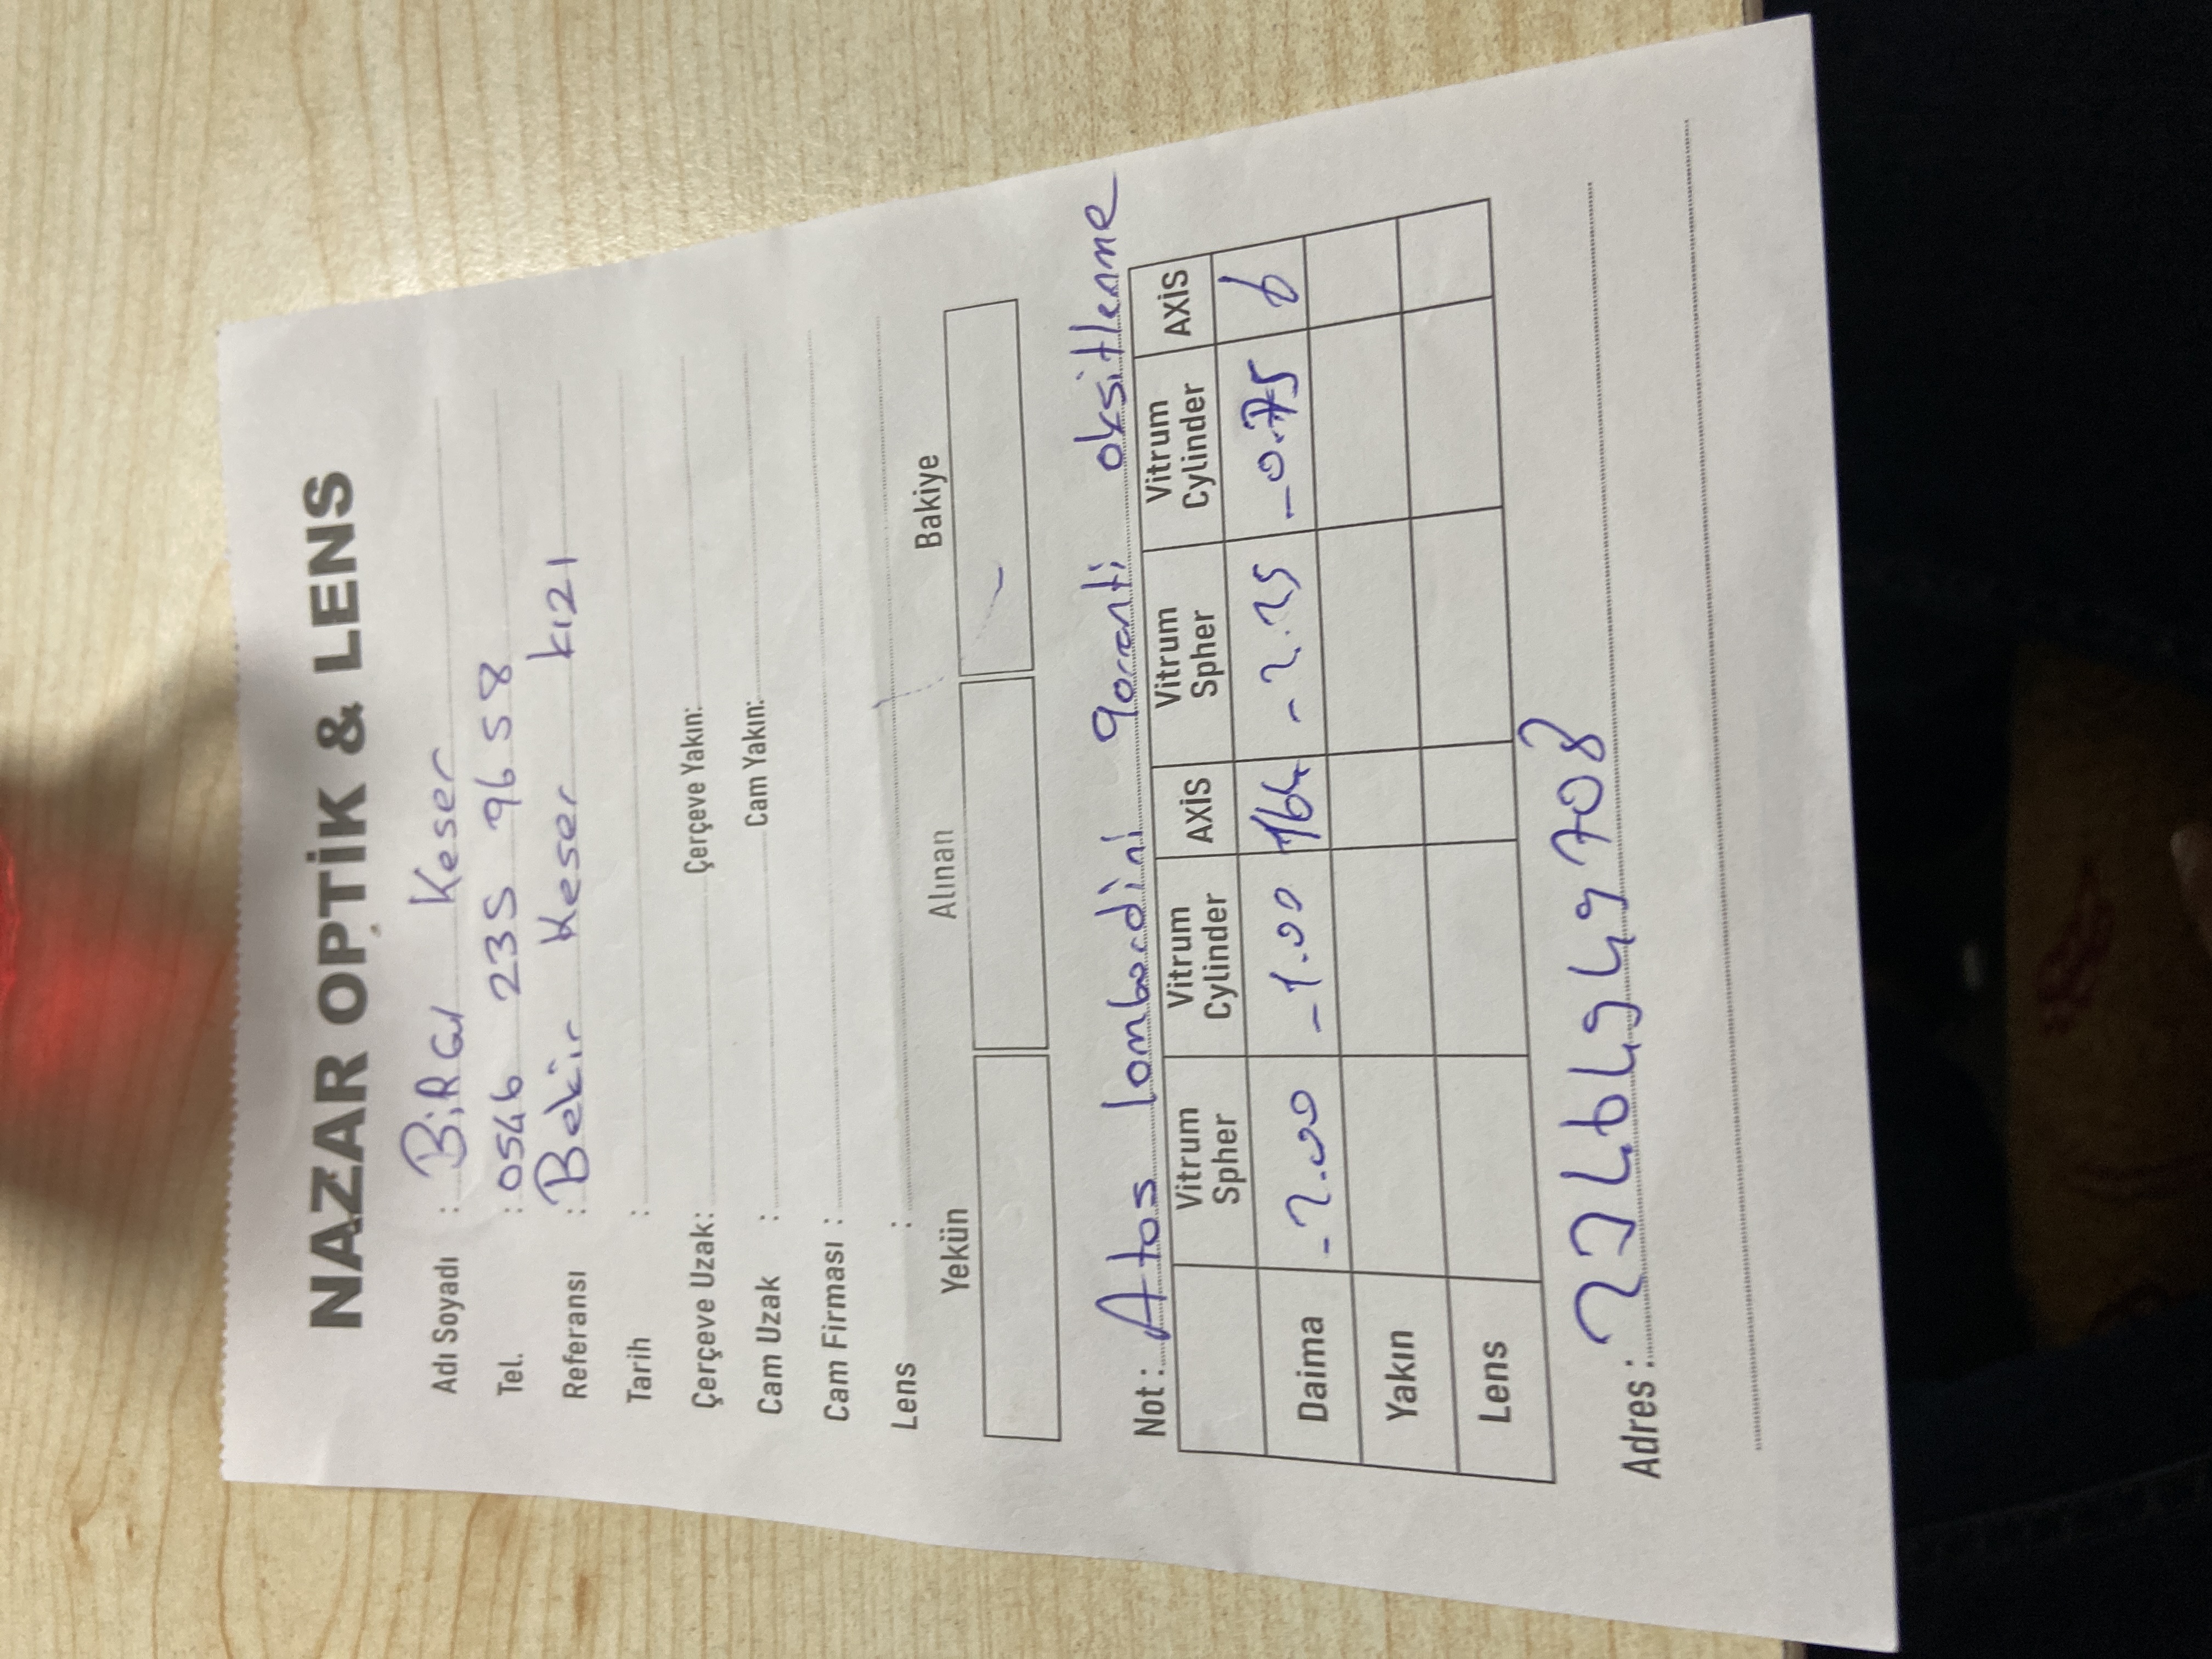 NAZAR OPTİK & LENS
Adı Soyadı : BiRGül Keser
Tel. : 0546 235 9658
Referansı : Bekir Keser kızı
Tarih :
Çerçeve Uzak: Çerçeve Yakın:
Cam Uzak : Cam Yakın:
Cam Firması :
Lens :
Yekün Alınan Bakiye
Not : Atos lombardini garanti oksitlenme
Vitrum Spher Vitrum Cylinder AXİS Vitrum Spher Vitrum Cylinder AXİS
Daima -2.00 -1.00 164 -2.25 -0.75 6
Yakın
Lens
Adres :